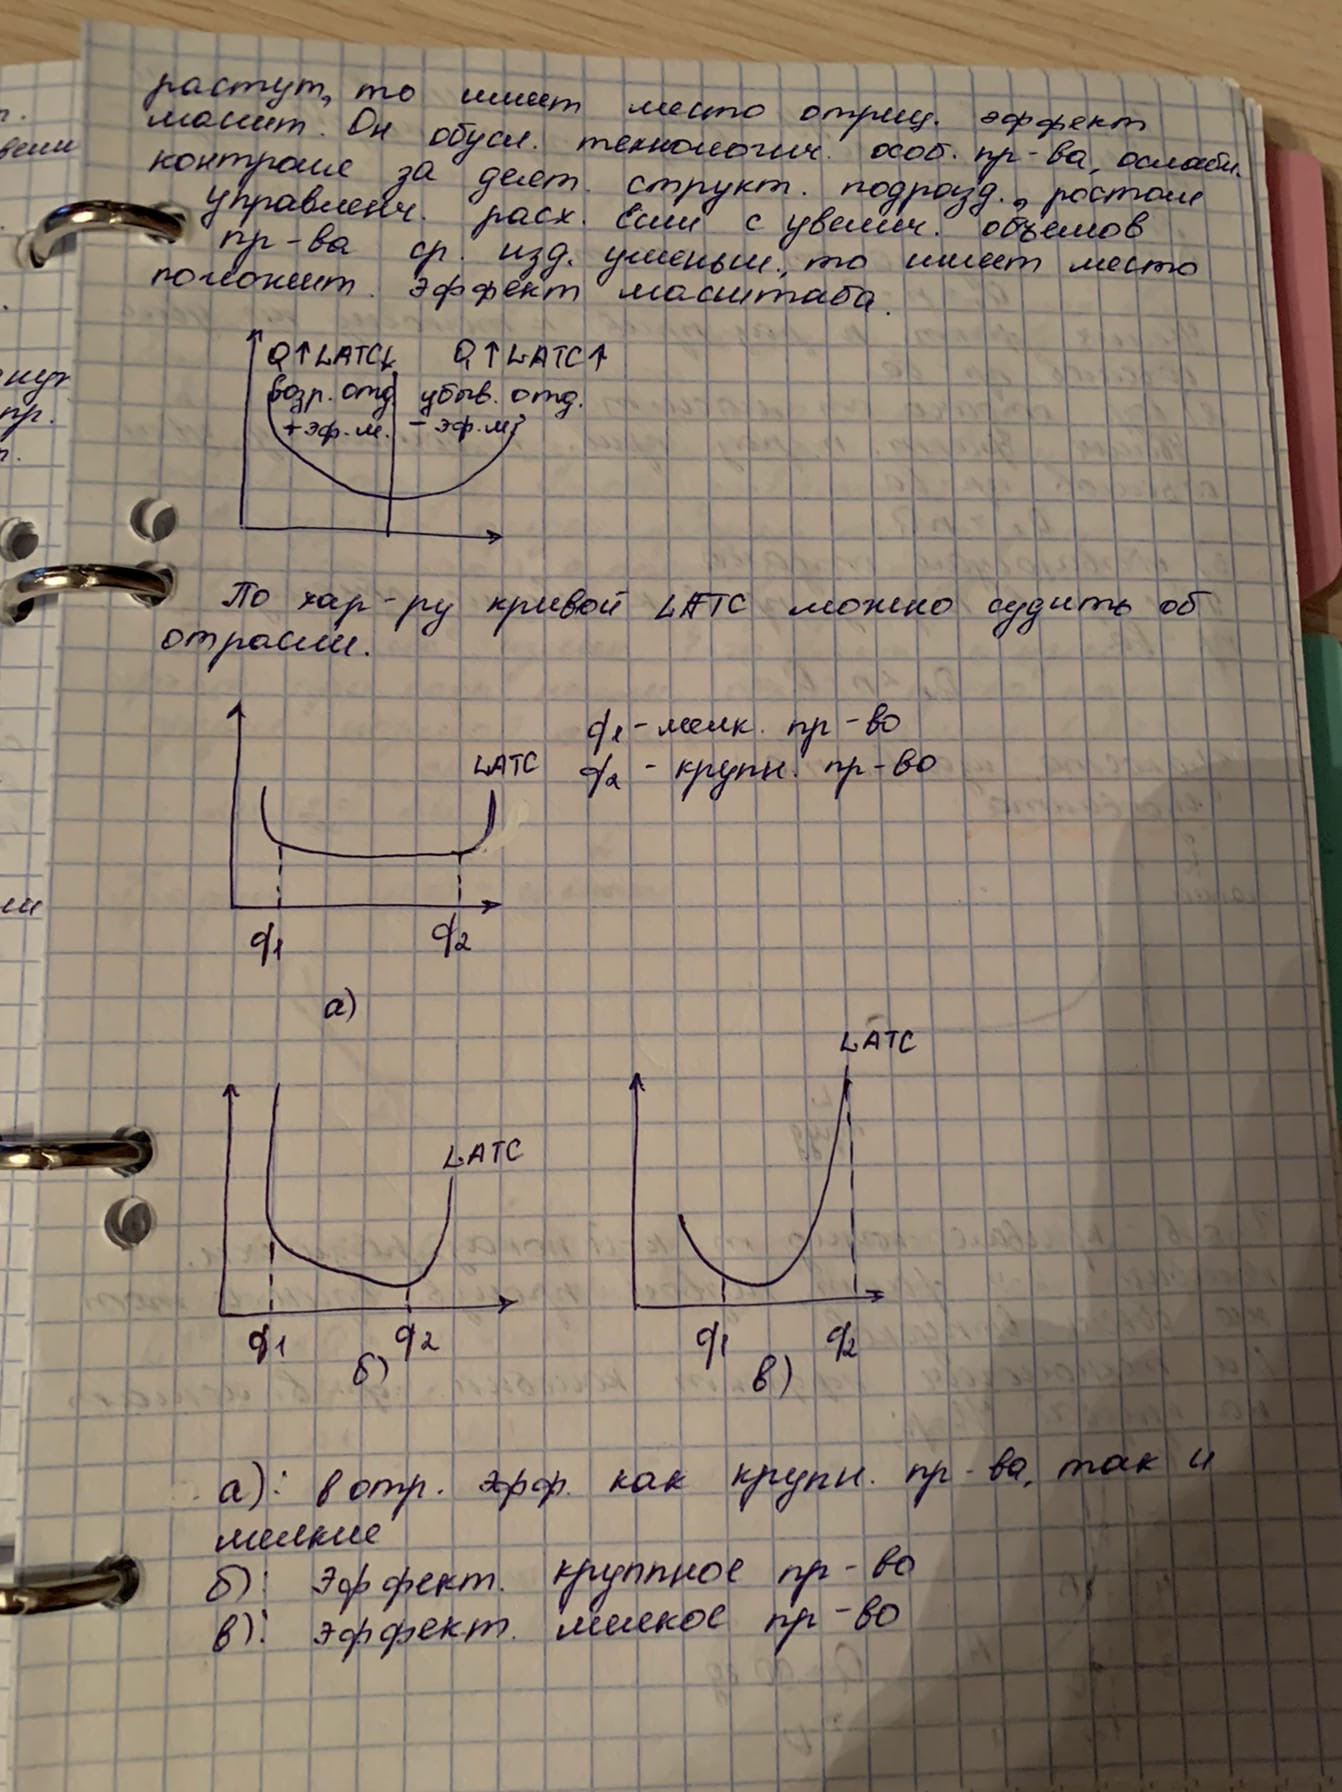 растут, то имеет место отриц. эффект
масшт. Он обусл. технологич. особ. пр-ва, ослабл.
контроля за деят. структ. подразд., ростом
управленч. расх. Если с увелич. объемов
пр-ва ср. изд. уменьш., то имеет место
положит. эффект масштаба.
Q↑LATC↓ Q↑LATC↑
возр. отд. убыв. отд.
+эф.м. -эф.м.
По хар-ру кривой LATC можно судить об
отрасли.
q1 - мелк. пр-во
LATC q2 - крупн. пр-во
q1 q2
а)
LATC
LATC
q1 q2 q1 q2
б) в)
а): в отр. эфф. как крупн. пр-ва, так и
мелкие
б): эффект. круппное пр-во
в): эффект. мелкое пр-во